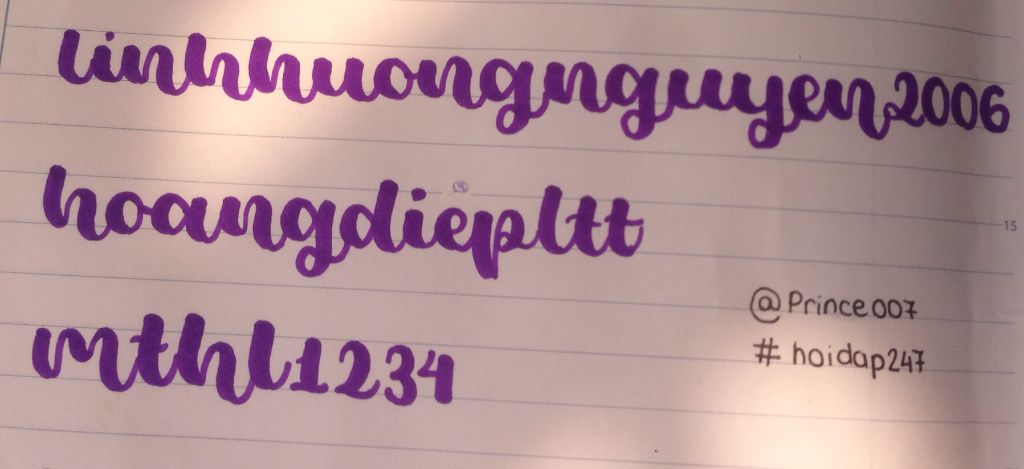 linhhuongnguyen2006
hoangdiepltt
mthl1234
15
@Prince007
# hoidap247